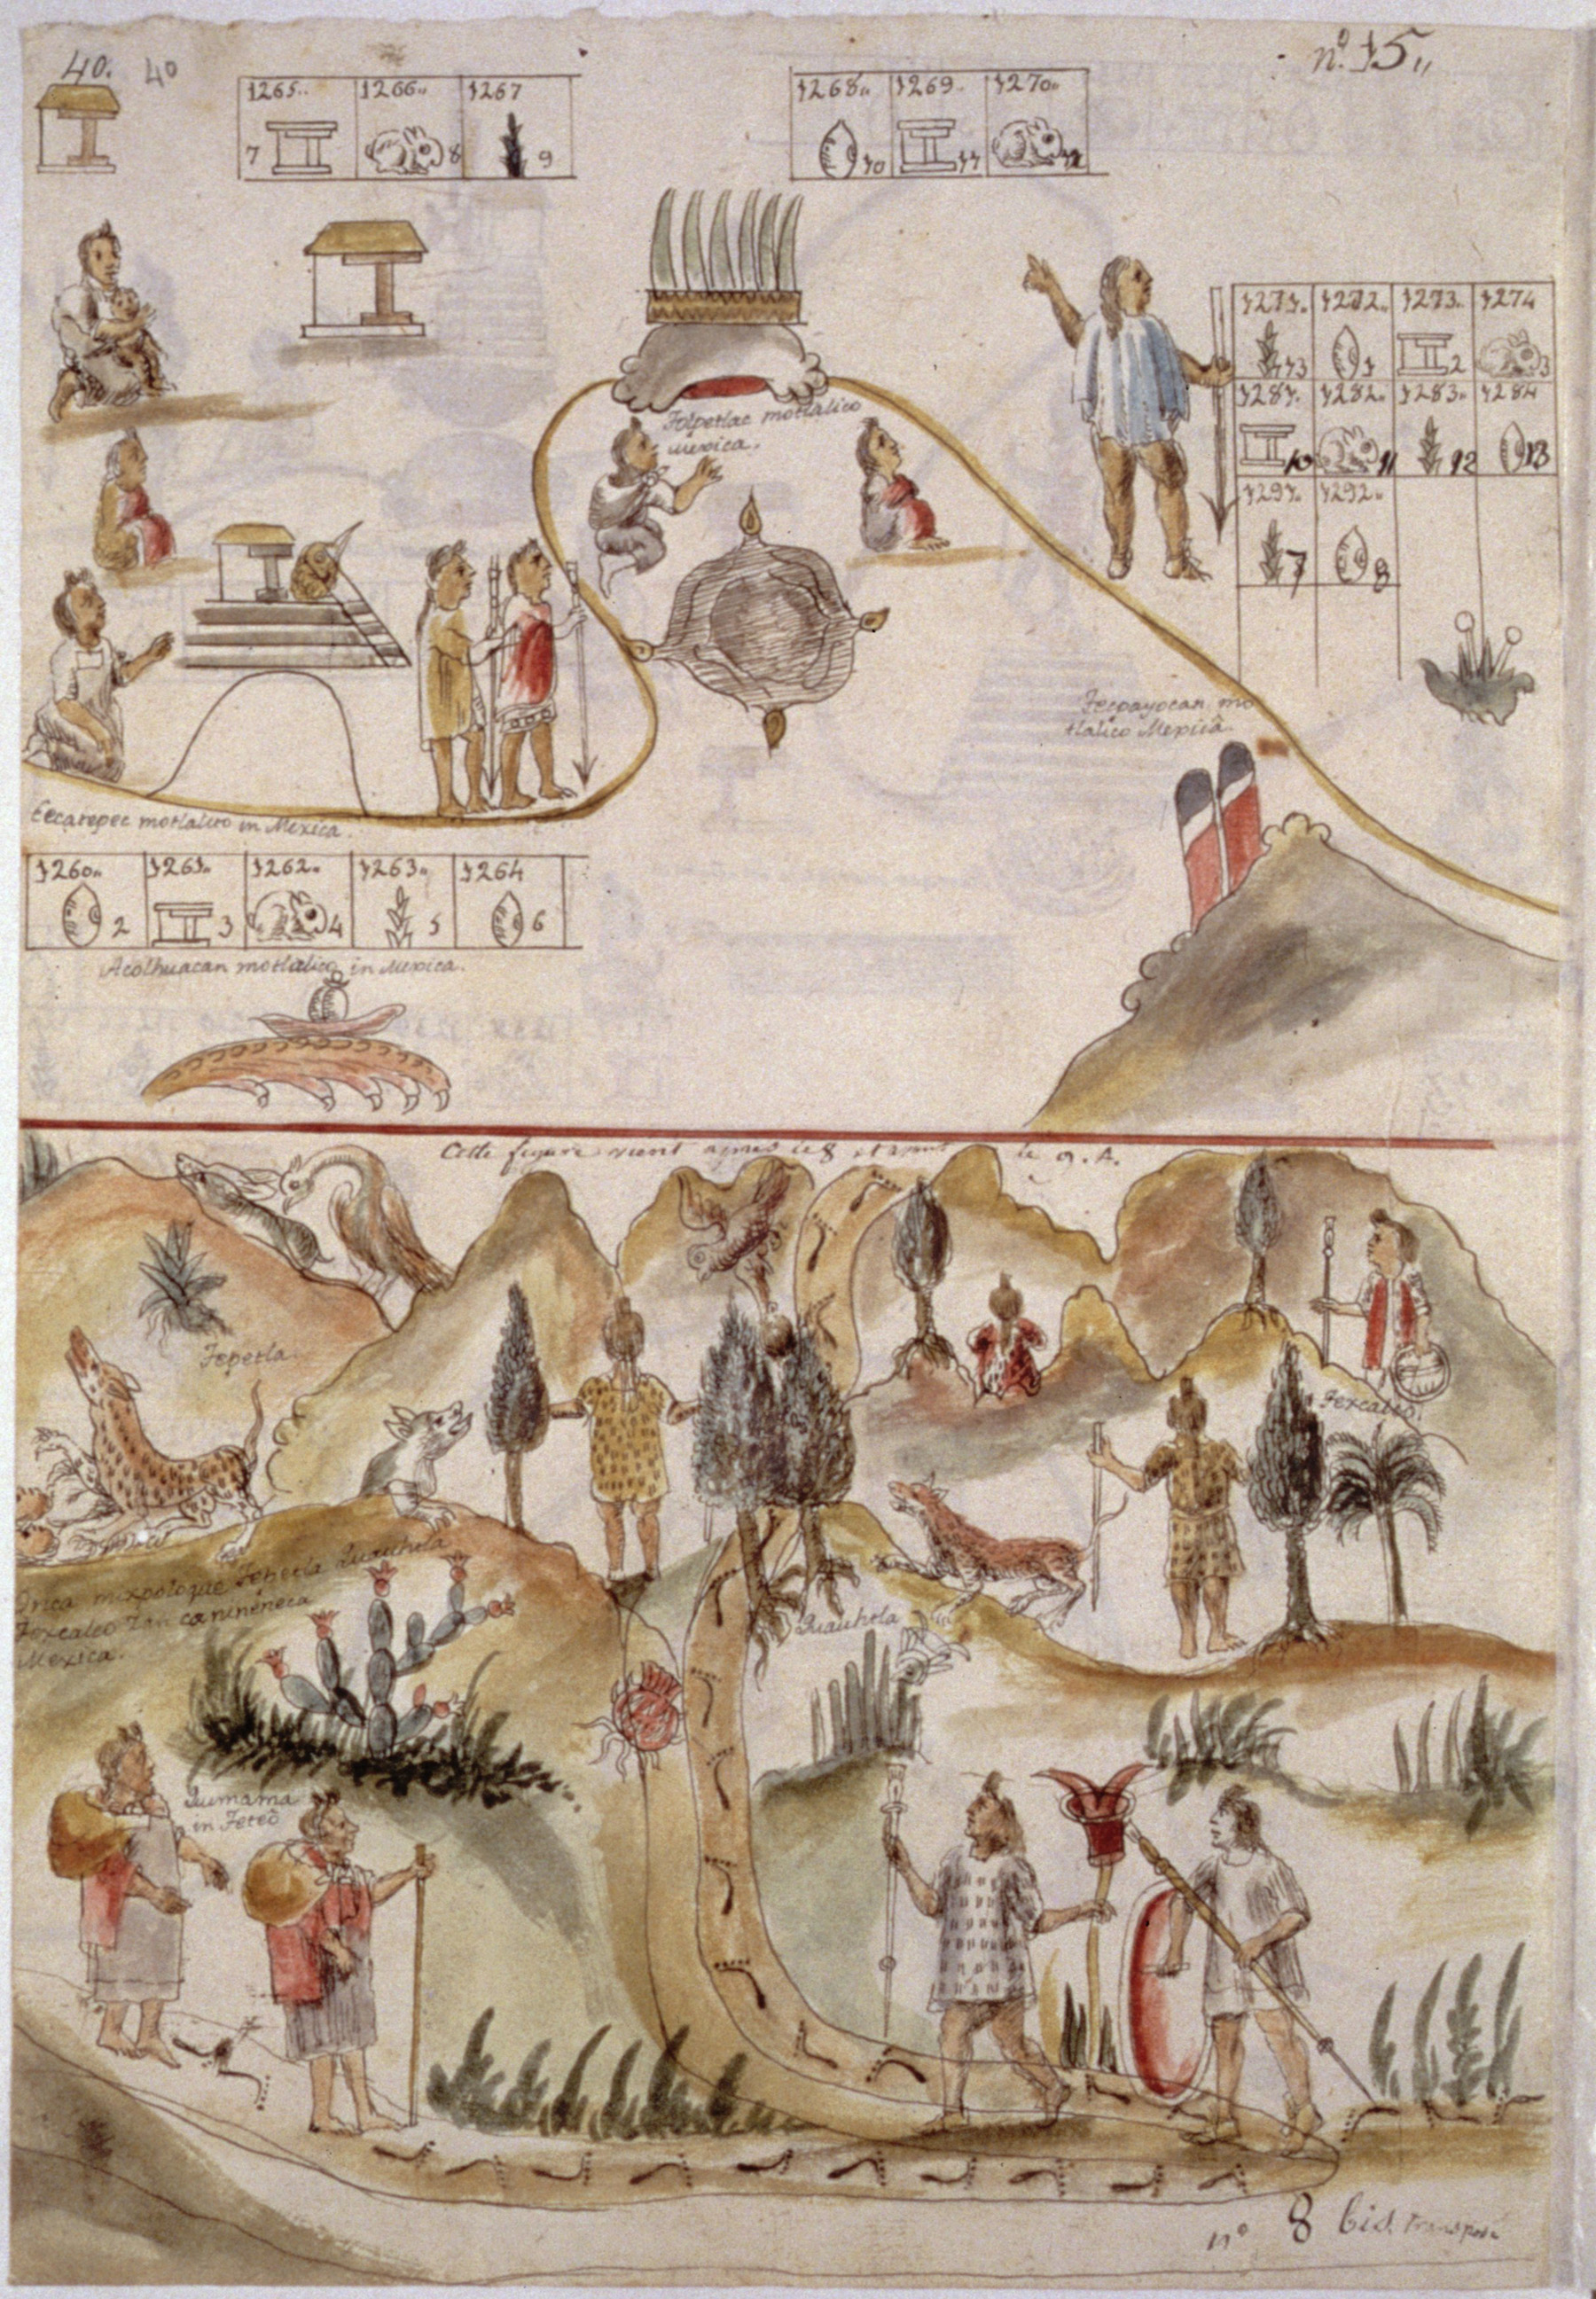 40. 40
nº. 15,,
1265.. 1266,, 1267
7 8 9
1268,, 1269. 1270,,
10 11 12
1271,, 1272,, 1273.. 1274
13 1 2 3
1281. 1282.. 1283.. 1284
10 11 12 13
1291. 1292..
7 8
Tolpetlac motlalico
mexica.
Tecpayocan mo
tlalico Mexica.
Eecatepec motlalico in Mexica.
1260,, 1261,, 1262.. 1263,, 1264
2 3 4 5 6
Acolhuacan motlalico in Mexica.
Cette figure vient apres le 8 et avant le 9. A.
Tepetla.
Texcaleo.
Onca mixpoloque Tepetla Quauhtla
Texcaleo Zan canineneca
Mexica.
Quauhtla
Quimama
in Teteo
nº 8 bis.